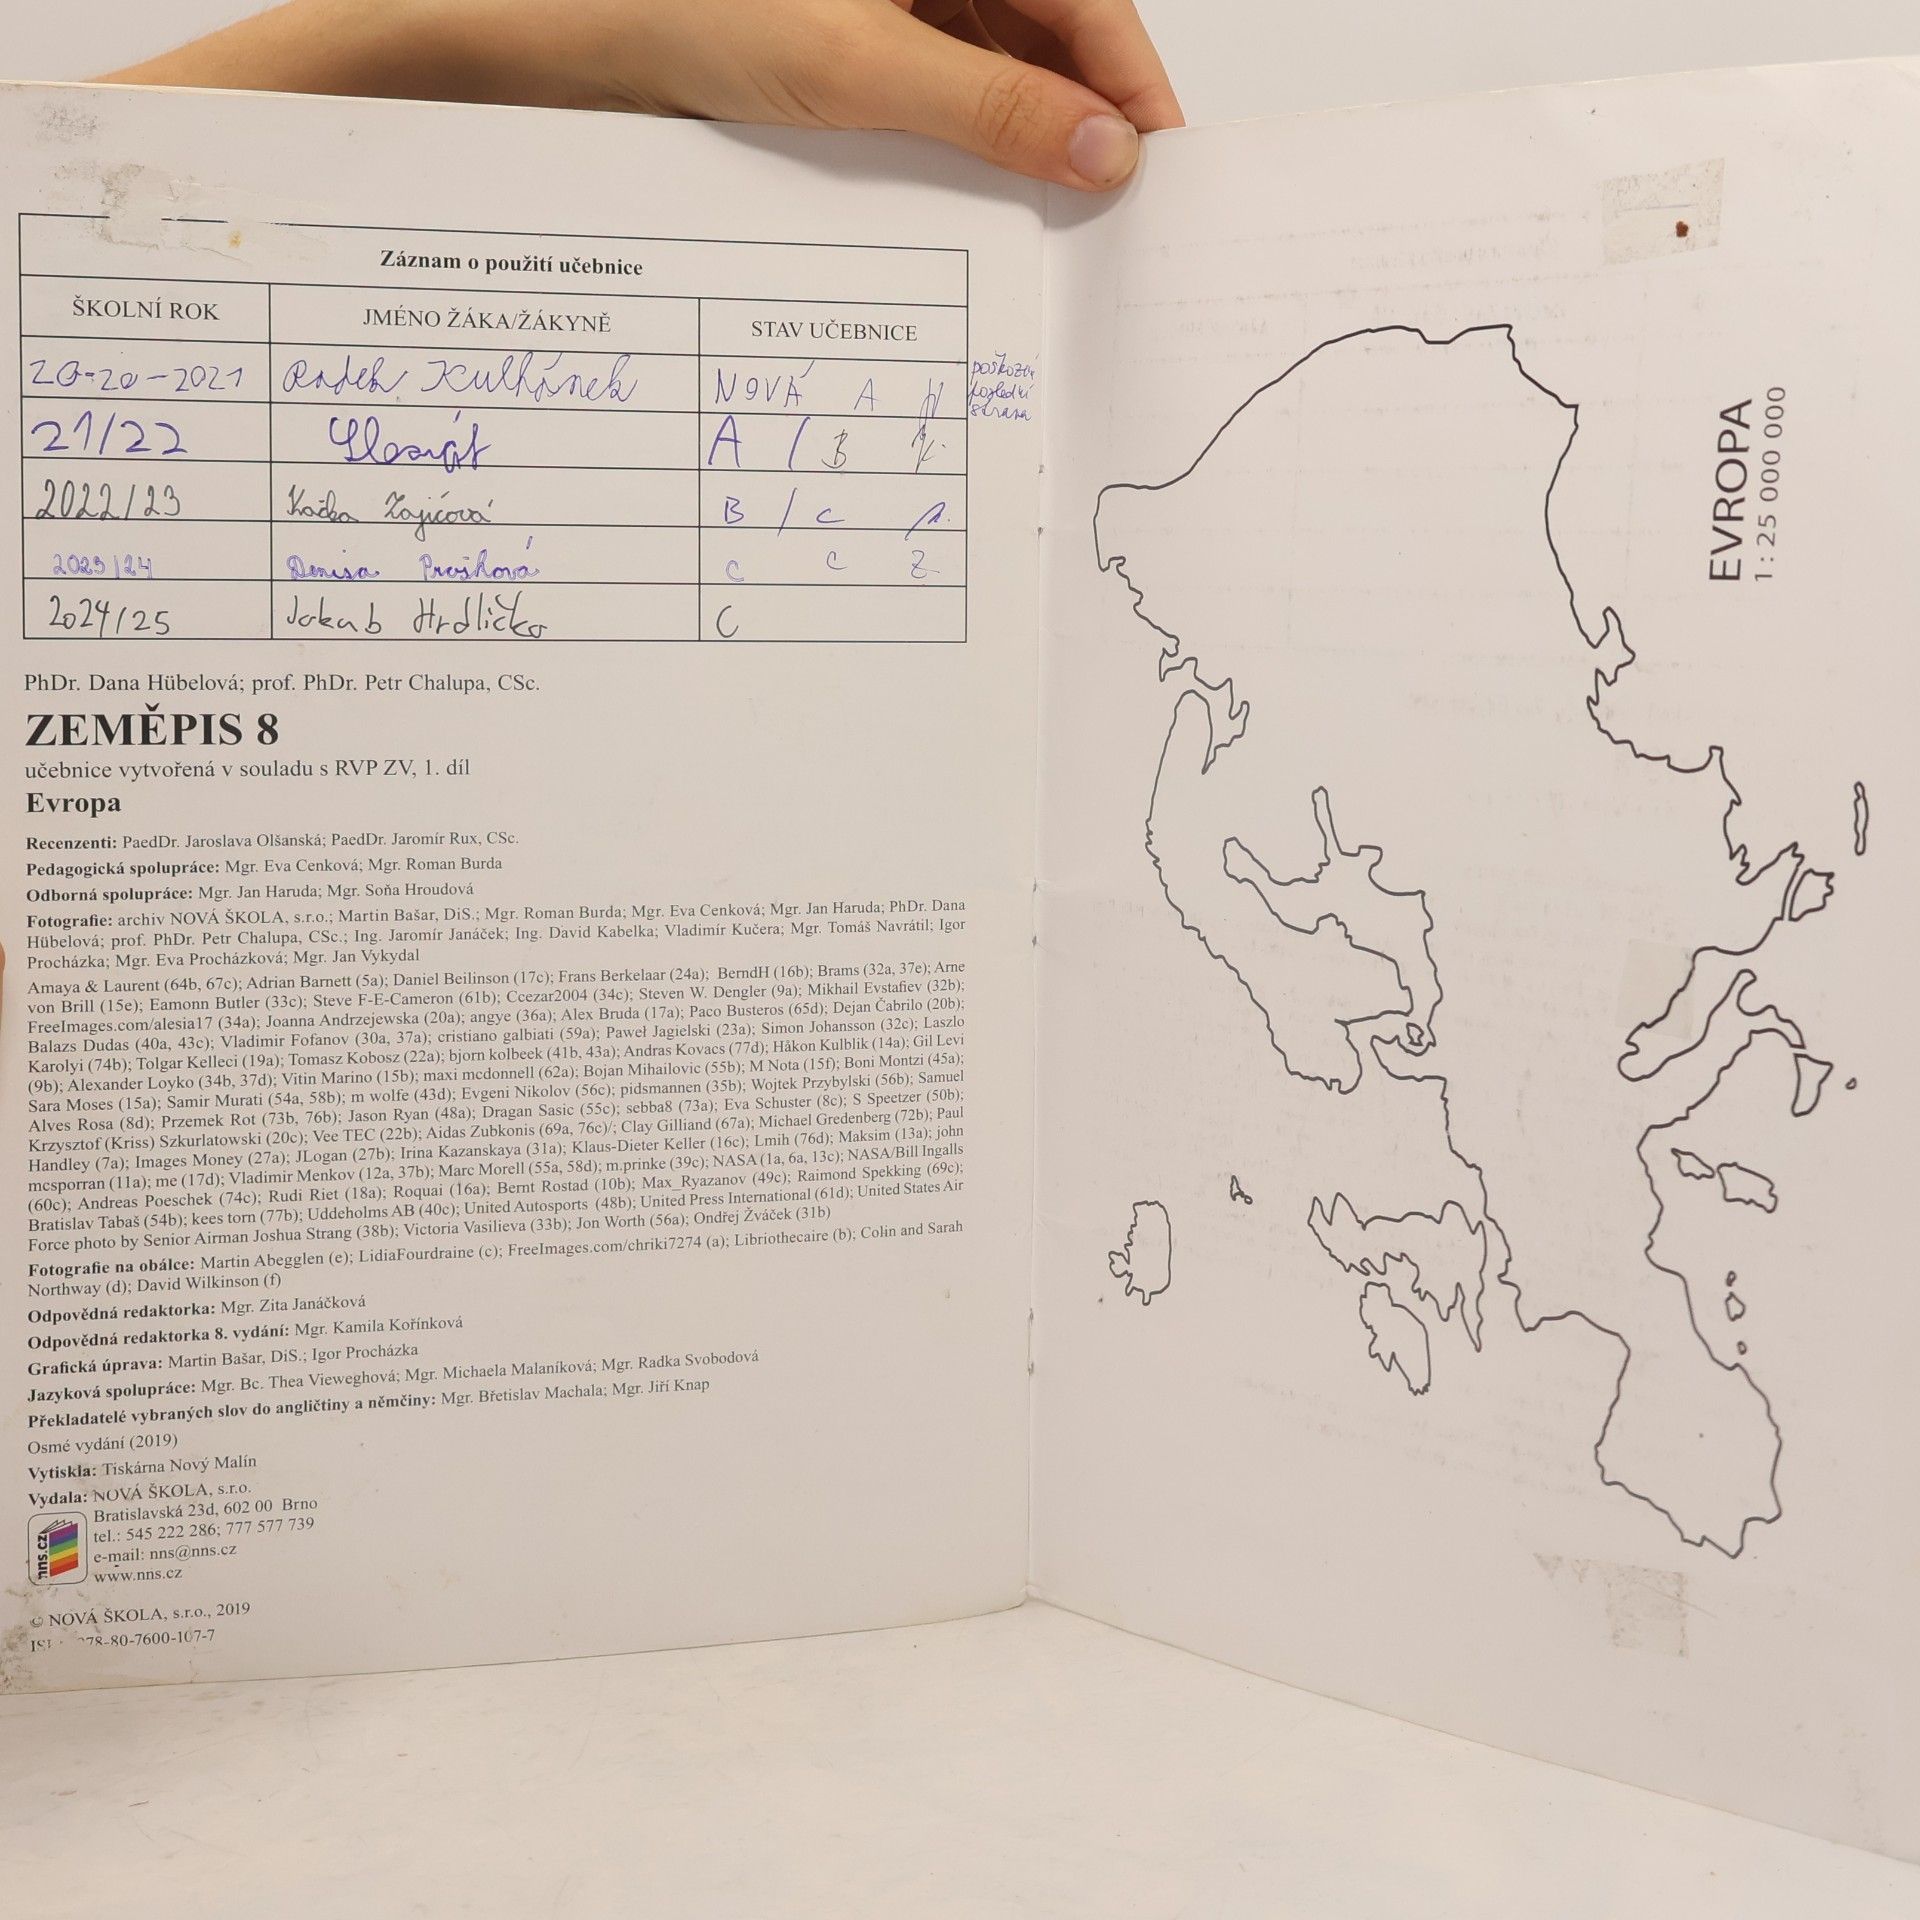 Záznam o použití učebnice
ŠKOLNÍ ROK JMÉNO ŽÁKA/ŽÁKYNĚ STAV UČEBNICE
2020-2021 Radek Kulhánek NOVÁ A
poškozená
poslední
strana
21/22 A / B
2022/23 Kačka Zajícová B / C
2023/24 Denisa Prošková C C
2024/25 Jakub Hrdlička C
PhDr. Dana Hübelová; prof. PhDr. Petr Chalupa, CSc.
ZEMĚPIS 8
učebnice vytvořená v souladu s RVP ZV, 1. díl
Evropa
Recenzenti: PaedDr. Jaroslava Olšanská; PaedDr. Jaromír Rux, CSc.
Pedagogická spolupráce: Mgr. Eva Cenková; Mgr. Roman Burda
Odborná spolupráce: Mgr. Jan Haruda; Mgr. Soňa Hroudová
Fotografie: archiv NOVÁ ŠKOLA, s.r.o.; Martin Bašar, DiS.; Mgr. Roman Burda; Mgr. Eva Cenková; Mgr. Jan Haruda; PhDr. Dana
Hübelová; prof. PhDr. Petr Chalupa, CSc.; Ing. Jaromír Janáček; Ing. David Kabelka; Vladimír Kučera; Mgr. Tomáš Navrátil; Igor
Procházka; Mgr. Eva Procházková; Mgr. Jan Vykydal
Amaya & Laurent (64b, 67c); Adrian Barnett (5a); Daniel Beilinson (17c); Frans Berkelaar (24a); BerndH (16b); Brams (32a, 37e); Arne
von Brill (15e); Eamonn Butler (33c); Steve F-E-Cameron (61b); Ccezar2004 (34c); Steven W. Dengler (9a); Mikhail Evstafiev (32b);
FreeImages.com/alesia17 (34a); Joanna Andrzejewska (20a); angye (36a); Alex Bruda (17a); Paco Busteros (65d); Dejan Čabrilo (20b);
Balazs Dudas (40a, 43c); Vladimir Fofanov (30a, 37a); cristiano galbiati (59a); Paweł Jagielski (23a); Simon Johansson (32c); Laszlo
Karolyi (74b); Tolgar Kelleci (19a); Tomasz Kobosz (22a); bjorn kolbeek (41b, 43a); Andras Kovacs (77d); Håkon Kulblik (14a); Gil Levi
(9b); Alexander Loyko (34b, 37d); Vitin Marino (15b); maxi mcdonnell (62a); Bojan Mihailovic (55b); M Nota (15f); Boni Montzi (45a);
Sara Moses (15a); Samir Murati (54a, 58b); m wolfe (43d); Evgeni Nikolov (56c); pidsmannen (35b); Wojtek Przybylski (56b); Samuel
Alves Rosa (8d); Przemek Rot (73b, 76b); Jason Ryan (48a); Dragan Sasic (55c); sebba8 (73a); Eva Schuster (8c); S Speetzer (50b);
Krzysztof (Kriss) Szkurlatowski (20c); Vee TEC (22b); Aidas Zubkonis (69a, 76c)/; Clay Gilliand (67a); Michael Gredenberg (72b); Paul
Handley (7a); Images Money (27a); JLogan (27b); Irina Kazanskaya (31a); Klaus-Dieter Keller (16c); Lmih (76d); Maksim (13a); john
mcsporran (11a); me (17d); Vladimir Menkov (12a, 37b); Marc Morell (55a, 58d); m.prinke (39c); NASA (1a, 6a, 13c); NASA/Bill Ingalls
(60c); Andreas Poeschek (74c); Rudi Riet (18a); Roquai (16a); Bernt Rostad (10b); Max_Ryazanov (49c); Raimond Spekking (69c);
Bratislav Tabaš (54b); kees torn (77b); Uddeholms AB (40c); United Autosports (48b); United Press International (61d); United States Air
Force photo by Senior Airman Joshua Strang (38b); Victoria Vasilieva (33b); Jon Worth (56a); Ondřej Žváček (31b)
Fotografie na obálce: Martin Abegglen (e); LidiaFourdraine (c); FreeImages.com/chriki7274 (a); Libriothecaire (b); Colin and Sarah
Northway (d); David Wilkinson (f)
Odpovědná redaktorka: Mgr. Zita Janáčková
Odpovědná redaktorka 8. vydání: Mgr. Kamila Kořínková
Grafická úprava: Martin Bašar, DiS.; Igor Procházka
Jazyková spolupráce: Mgr. Bc. Thea Vieweghová; Mgr. Michaela Malaníková; Mgr. Radka Svobodová
Překladatelé vybraných slov do angličtiny a němčiny: Mgr. Břetislav Machala; Mgr. Jiří Knap
Osmé vydání (2019)
Vytiskla: Tiskárna Nový Malín
Vydala: NOVÁ ŠKOLA, s.r.o.
Bratislavská 23d, 602 00 Brno
tel.: 545 222 286; 777 577 739
e-mail: nns@nns.cz
www.nns.cz
nns.cz
© NOVÁ ŠKOLA, s.r.o., 2019
78-80-7600-107-7
EVROPA
1 : 25 000 000